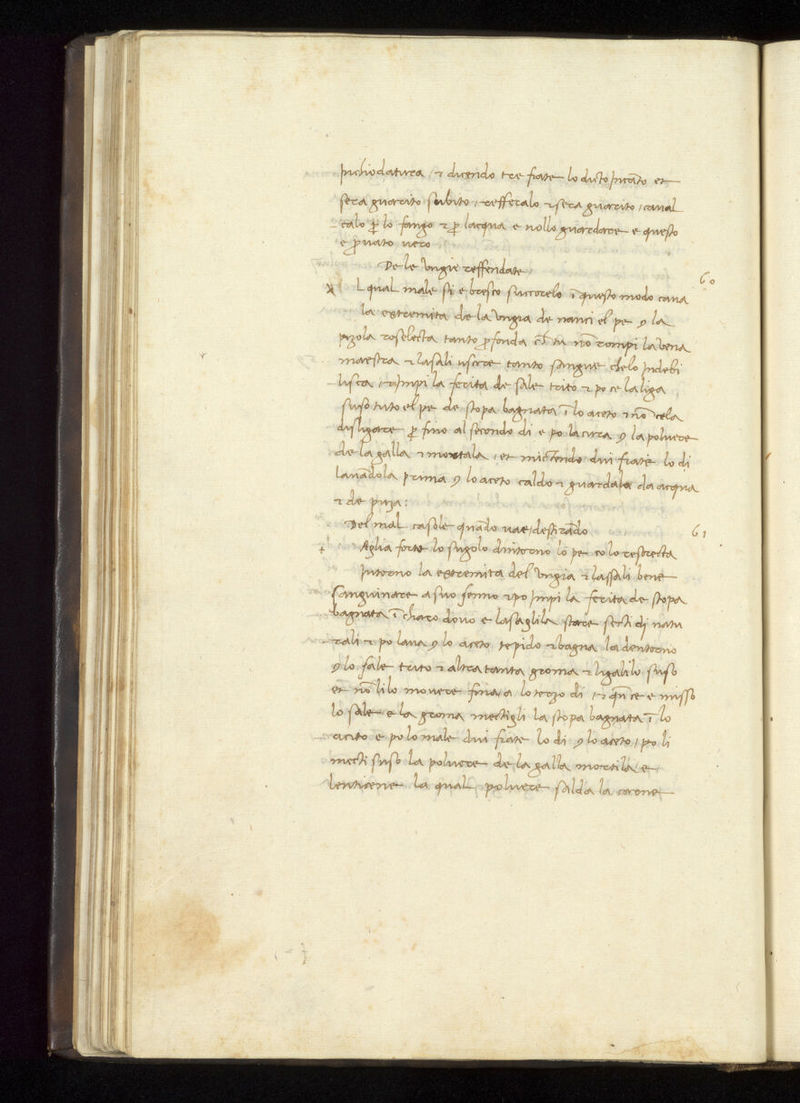 Inchiodatura / ⁊ dicendo tre fiate lo dicto incāto et
sera guarrito subito / refferalo ⁊ sera guarrito / caual
calo ꝑ lo fango ⁊ ꝑ lacqua e nollo guardare e questo
e ꝓuato uero
De le Vngie reffendate / 60
L qual male si e bresco succorelo ī questo modo caua
la estremita de la Vngia de nanci el pe 9 la
rosecta tanto ꝓfonda tu nō rompi la uena
maestra ⁊ lasali uscire tanto sangue chelo indebi
lisca / ⁊ impi la ferita de sale trito ⁊ po ce la liga
suso tuto el pe de stopa bagnata ī lo aceto ⁊ nō cela
disligare ꝑ fino al secondo di e po la cura 9 la poluere
de la galla ⁊ mortala / et mictendo dui fiate lo di
lauādola prima 9 lo aceto caldo ⁊ guardala da acqua
⁊ de puza :
Del mal casole quādo uae / destirādo 61
Aglia forte lo sugolo dintorno lo pe co lo rosecta
Intorno la estremita del Vngia ⁊ lassali bene
sanguinare a suo senno ⁊ po impi la ferita de stopa
bagnata ī charo douo e lasaglila stare secti di natu
rali ⁊ po laua 9 lo aceto tepido ⁊ bagna la dentorno
9 lo sale trito ⁊ altra tanta groma ⁊ ligalilo suso
et nō lilo mouere fina / a lo terzo di / ⁊ ce e misso
lo sale e la groma mectigli la stopa bagnata ī lo
acito e po lo male dui fiate lo di 9 lo aceto / po li
mecti suso la poluere de la galla mortila e
lenticene la qual poluere salda la carone